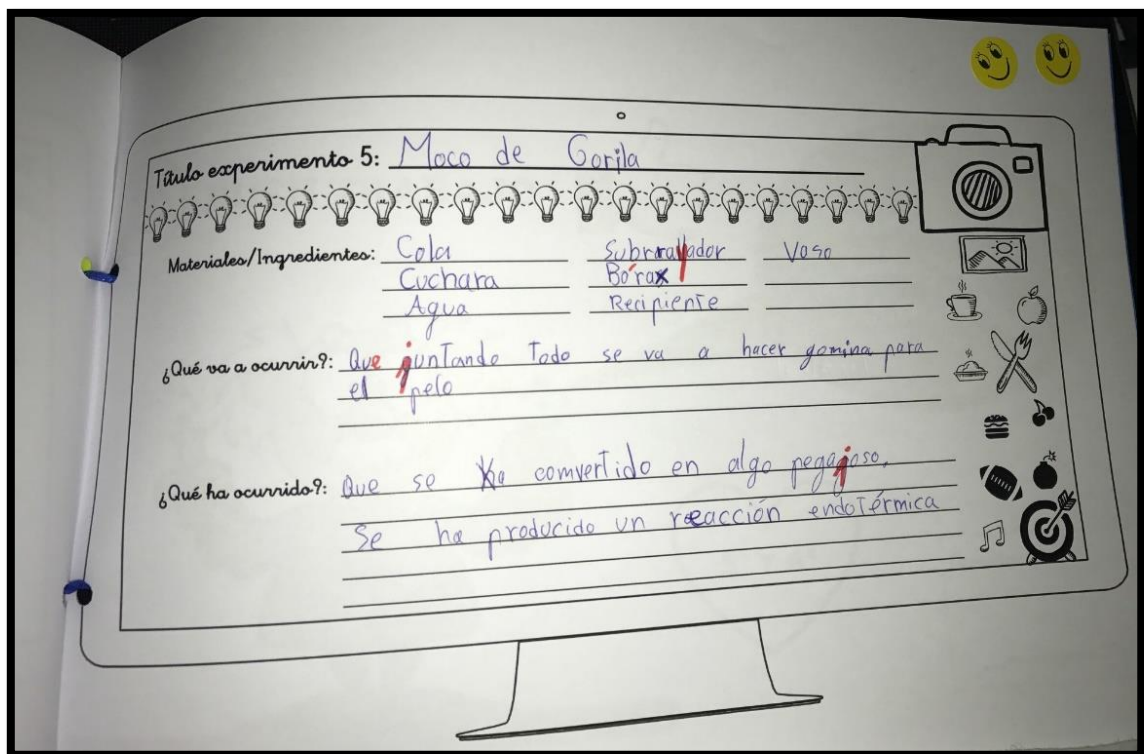 Título experimento 5: Moco de Gorila
Materiales/Ingredientes: Cola Subrrayador Vaso
Cuchara Bórax
Agua Recipiente
¿Qué va a ocurrir?: Que juntando todo se va a hacer gomina para
el pelo
¿Qué ha ocurrido?: Que se ha comvertido en algo pegajoso.
Se ha producido un reacción endotérmica